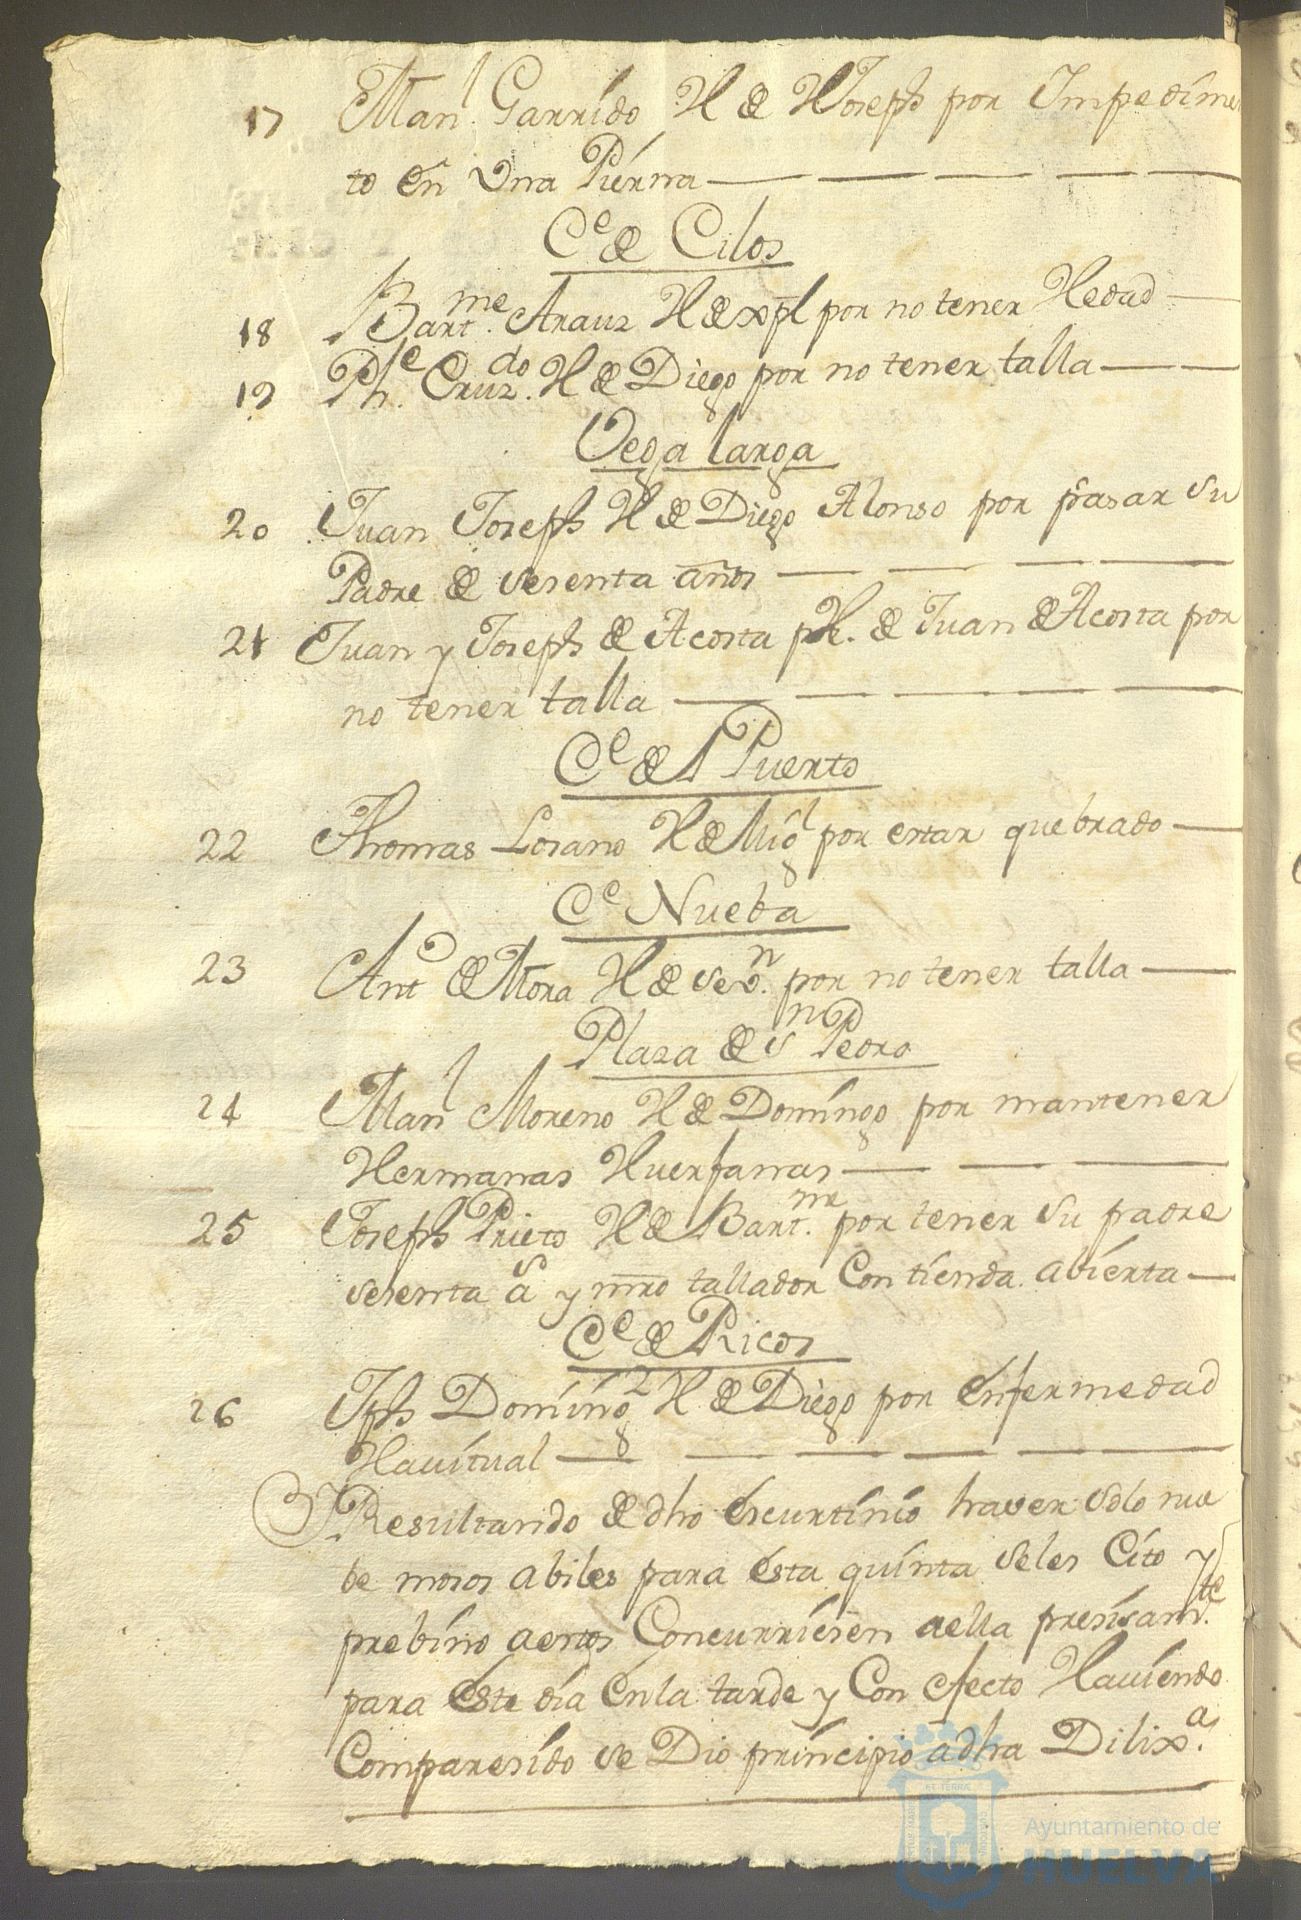 17 Man.l Garrido H de Joseph por Impedimen
to en Una Pierna
C.e de Cilos
18 Bart.me Arauz H de xpl por no tener Hedad
19 Ph.e Cruz.do H de Diego por no tener talla
Vega larga
20 Juan Joseph H de Diego Alonso por pasar su
Padre de sesenta años
21 Juan y Joseph de Acosta H. de Juan de Acosta por
no tener talla
C.e del Puerto
22 Thomas Losano H de Migl por estar quebrado
C.e Nueba
23 Ant.o de Mora H de Seb.n por no tener talla
Plaza de S.n Pedro
24 Man.l Moreno H de Domingo por mantener
Hermanas Huerfanas
25 Joseph Prieto H de Bart.me por tener su padre
sesenta a.s y mro tallador Con tienda abierta
C.e de Ricos
26 Jph Doming.z H de Diego por enfermedad
Havitual
Resultando de dho escurtinio haver solo nue
be mosos abiles para esta quinta seles Cito y
prebino aestos Concurriesen aella presisam.te
para este dia enla tarde y Con efecto Haviendo
Comparesido se Dio principio adha Dilix.a
Ayuntamiento de
HUELVA